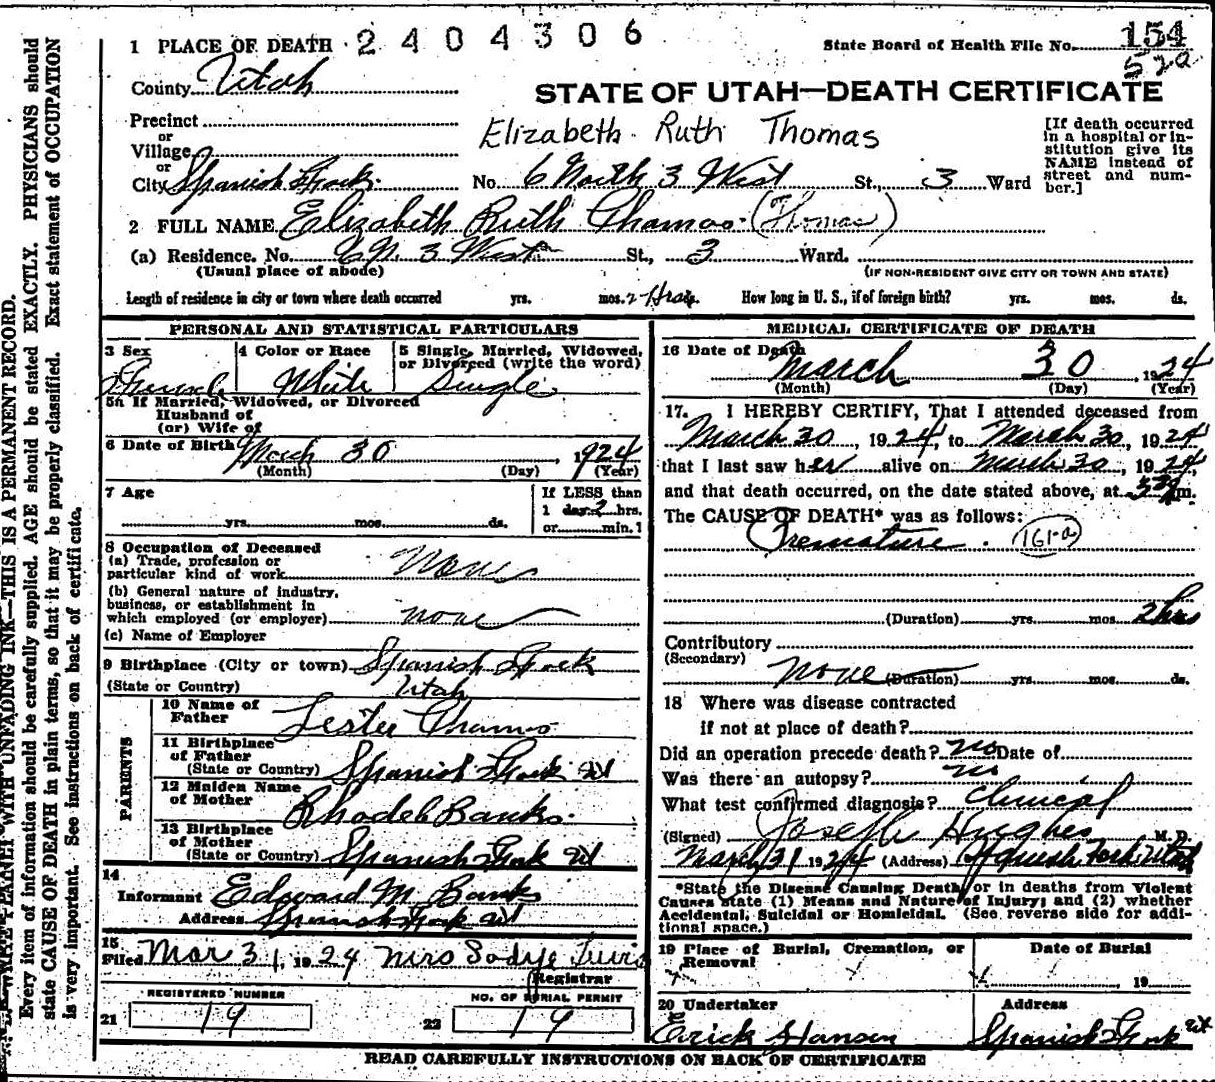 2404306
State Board of Health File No. 154
52a
1 PLACE OF DEATH
County Utah
STATE OF UTAH—DEATH CERTIFICATE
Precinct
or
Village
or
City Spanish Fork
Elizabeth Ruth Thomas
[If death occurred in a hospital or in-
stitution give its
NAME instead of
street and num-
ber.]
No. 6 North 3 West St., 3 Ward
2 FULL NAME Elizabeth Ruth Thomas (or Thomas)
(a) Residence. No. 6 N. 3 West St., 3 Ward.
(Usual place of abode)
(IF NON-RESIDENT GIVE CITY OR TOWN AND STATE)
Length of residence in city or town where death occurred yrs. mos. 2 Hrs ds. How long in U. S., if of foreign birth? yrs. mos. ds.
PERSONAL AND STATISTICAL PARTICULARS
3 Sex
4 Color or Race White
5 Single, Married, Widowed,
or Divorced (write the word)
Single
5a If Married, Widowed, or Divorced
Husband of
(or) Wife of
6 Date of Birth March 30 1924
(Month) (Day) (Year)
7 Age
yrs. mos. ds.
If LESS than
1 day 2 hrs.
or min. 1
8 Occupation of Deceased
(a) Trade, profession or
particular kind of work None
(b) General nature of industry,
business, or establishment in
which employed (or employer) none
(c) Name of Employer
9 Birthplace (City or town) Spanish Fork
(State or Country) Utah
PARENTS
10 Name of
Father Lester Thomas
11 Birthplace
of Father
(State or Country) Spanish Fork Ut
12 Maiden Name
of Mother Rhodeh Banks
13 Birthplace
of Mother
(State or Country) Spanish Fork Ut
14
Informant Edward M. Banks
Address Spanish Fork Ut
15
Filed Mar 31, 1924 Mrs
Registrar
REGISTERED NUMBER
21 19
NO. OF BURIAL PERMIT
22 19
MEDICAL CERTIFICATE OF DEATH
16 Date of Death
March 30 1924
(Month) (Day) (Year)
17. I HEREBY CERTIFY, That I attended deceased from
March 30, 1924, to March 30, 1924
that I last saw her alive on March 30, 1924,
and that death occurred, on the date stated above, at m.
The CAUSE OF DEATH* was as follows:
Premature. 161-a
(Duration) yrs. mos. 2 hrs
Contributory
(Secondary)
None (Duration) yrs. mos. ds.
18 Where was disease contracted
if not at place of death?
Did an operation precede death? no Date of
Was there an autopsy? no
What test confirmed diagnosis? Clinical
(Signed) Joseph Hughes M. D.
March 31 1924 (Address) Spanish Fork Utah
*State the Disease Causing Death, or in deaths from Violent
Causes state (1) Means and Nature of Injury; and (2) whether
Accidental, Suicidal or Homicidal. (See reverse side for addi-
tional space.)
19 Place of Burial, Cremation, or
Removal
Date of Burial
19
20 Undertaker
Erick Hansen
Address
Spanish Fork Ut
READ CAREFULLY INSTRUCTIONS ON BACK OF CERTIFICATE
WRITE PLAINLY WITH UNFADING INK—THIS IS A PERMANENT RECORD.
Every item of information should be carefully supplied. AGE should be stated EXACTLY. PHYSICIANS should
state CAUSE OF DEATH in plain terms, so that it may be properly classified. Exact statement of OCCUPATION
is very important. See instructions on back of certificate.